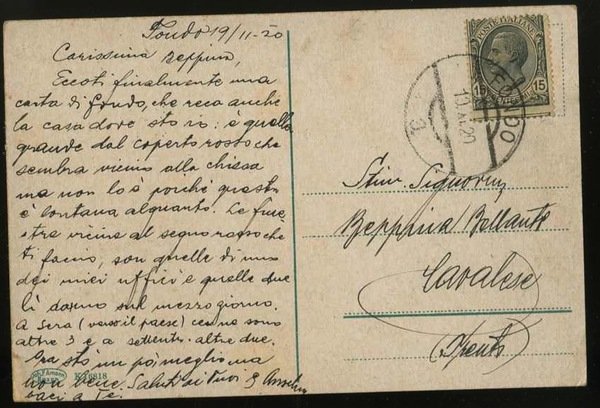 Fondo 19/11-20
Carissima Beppina,
Eccoti finalmente una
carta di Fondo, che reca anche
la casa dove sto io: è quella
grande dal coperto rosso che
sembra vicino alla chiesa
ma non lo è perchè questa
è lontana alquanto. Le fine
stre vicine al segno rosso che
ti faccio, son quelle di uno
dei miei uffici e quelle due
lì danno sul mezzogiorno.
a sera (verso il paese) ce ne sono
altre 3 e a settentr. altre due.
Ora sto un po' meglio ma
non bene. Saluti ai tuoi e
baci a Te.
K 18818
POSTE ITALIANE
15 15
FONDO
19.XI.20
Stim. Signorina
Beppina Bellante
Cavalese
Trento